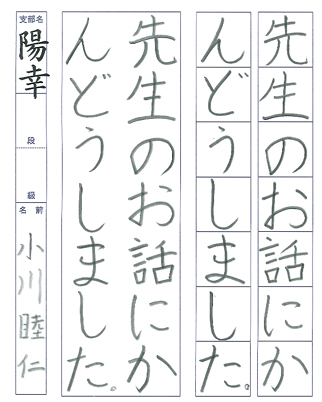 先生のお話にか
んどうしました。
先生のお話にか
んどうしました。
支部名
陽幸
段
級
名前
小川睦仁